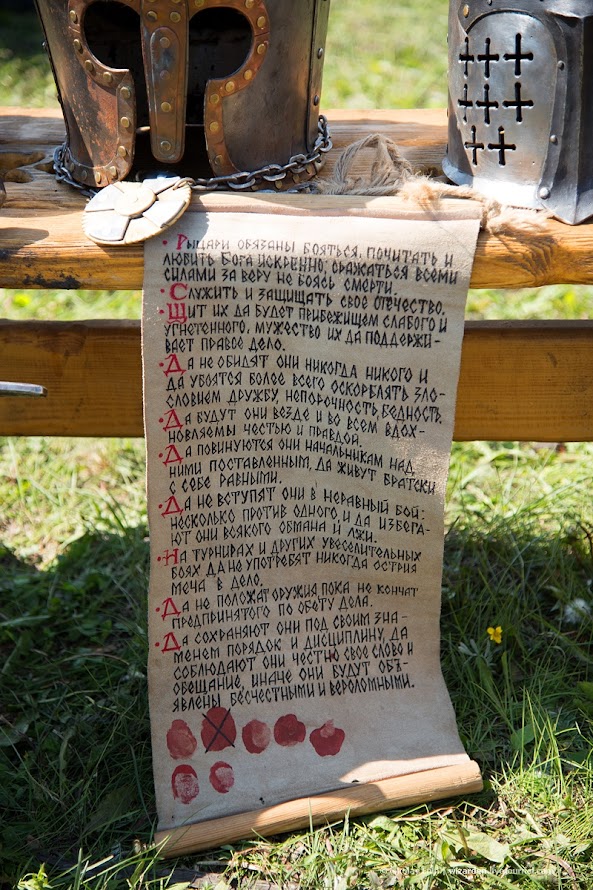 • Рыцари обязаны бояться, почитать и
любить Бога искренно; сражаться всеми
силами за веру не боясь смерти.
• Служить и защищать свое отечество.
• Щит их да будет прибежищем слабого и
угнетенного, мужество их да поддержи-
вает правое дело.
• Да не обидят они никогда никого и
да убоятся более всего оскорблять зло-
словием дружбу, непорочность, бедность.
• Да будут они везде и во всем вдох-
новляемы честью и правдой.
• Да повинуются они начальникам над
ними поставленным, да живут братски
с себе равными.
• Да не вступят они в неравный бой-
несколько против одного, и да избега-
ют они всякого обмана и лжи.
• На турнирах и других увеселительных
боях да не употребят никогда острия
меча в дело.
• Да не положат оружия, пока не кончат
предпринятого по обету дела.
• Да сохраняют они под своим зна-
менем порядок и дисциплину, да
соблюдают они честно свое слово и
обещание, иначе они будут объ-
явлены бесчестными и вероломными.